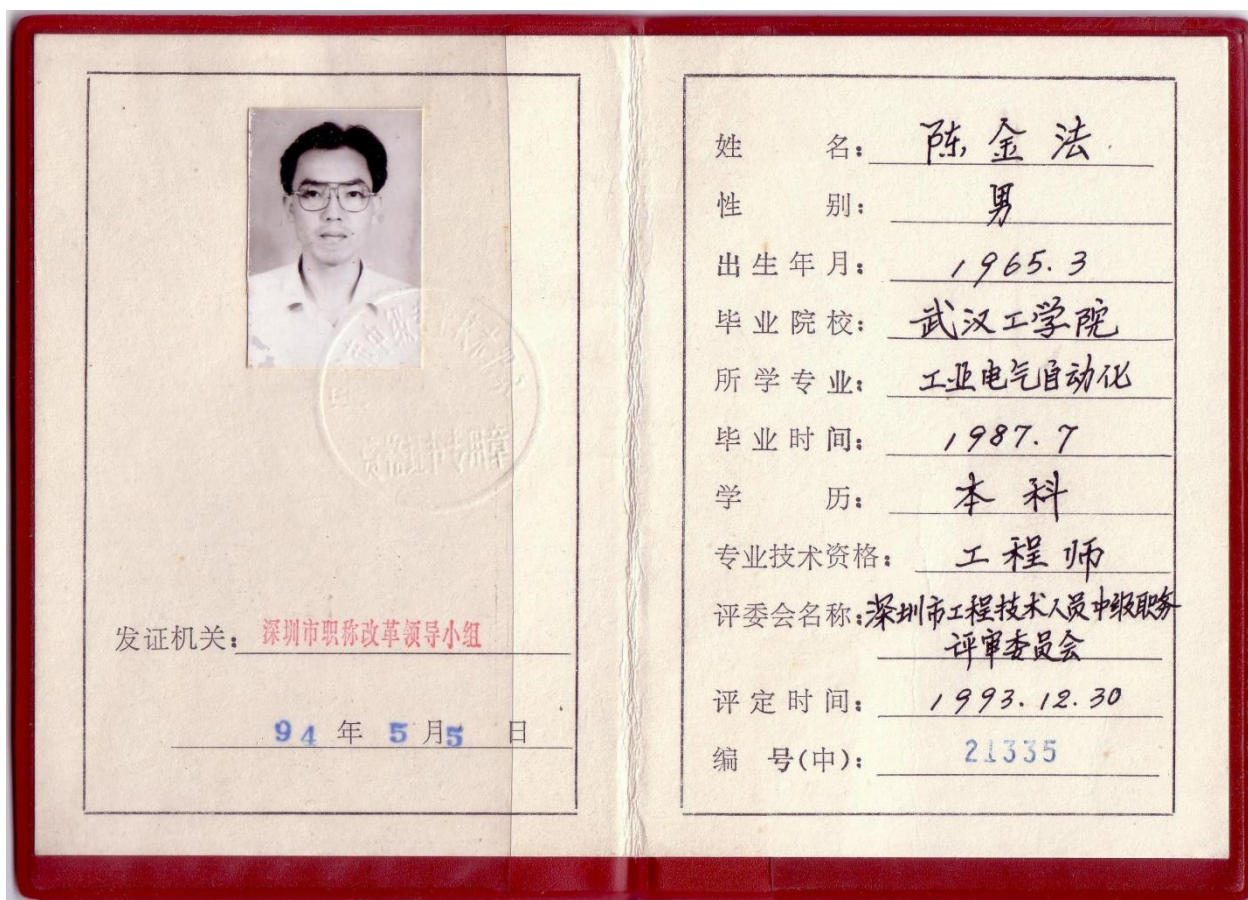 发证机关：深圳市职称改革领导小组
94年5月5日
资格证书专用章
姓名：陈金法
性别：男
出生年月：1965.3
毕业院校：武汉工学院
所学专业：工业电气自动化
毕业时间：1987.7
学历：本科
专业技术资格：工程师
评委会名称：深圳市工程技术人员中级职务
评审委员会
评定时间：1993.12.30
编号(中)：21335